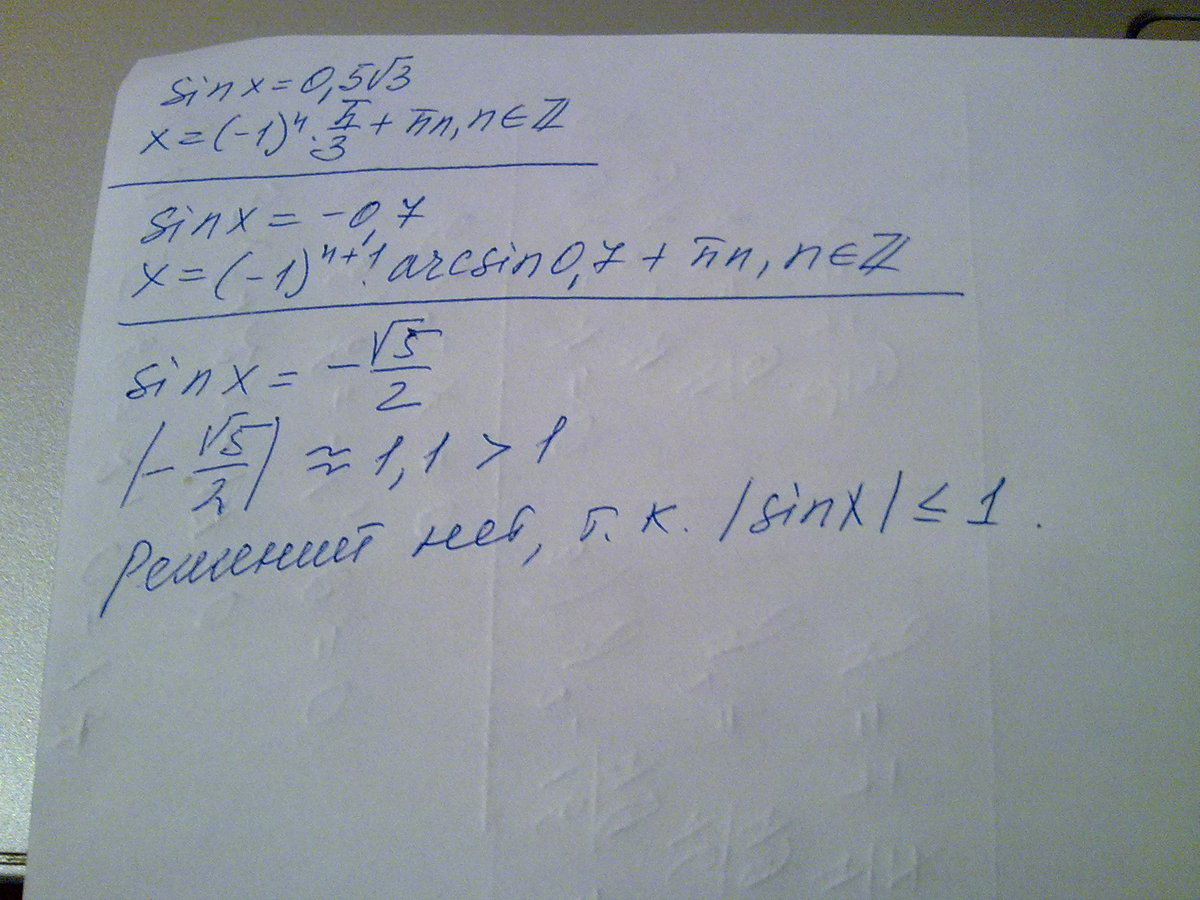 sin x = 0,5√3
x = (-1)ⁿ · π/3 + πn, n ∈ ℤ
sin x = -0,7
x = (-1)ⁿ⁺¹ · arcsin 0,7 + πn, n ∈ ℤ
sin x = -√5/2
|-√5/2| ≈ 1,1 > 1
Решений нет, т. к. |sin x| ≤ 1.